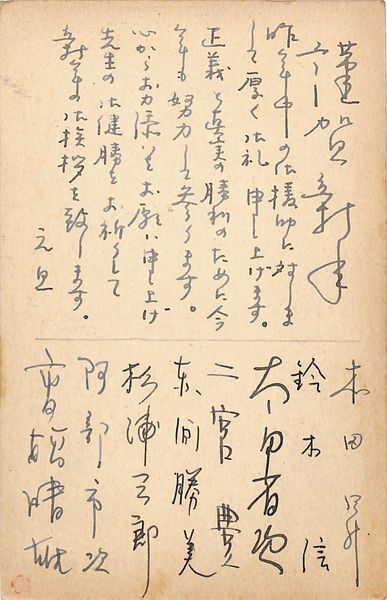 謹賀新年
昨年中の御援助に対しま
して厚く御礼申し上げます。
正義と真実の勝利のために今
年も努力して参ります。
心からお力添いをお願い申し上げ
先生の御健勝をお祈りして
新年の御挨拶を致します。
元旦
本田昇
鈴木信
太田省次
二宮豊
赤間勝美
杉浦三郎
阿部市次
高橋晴雄